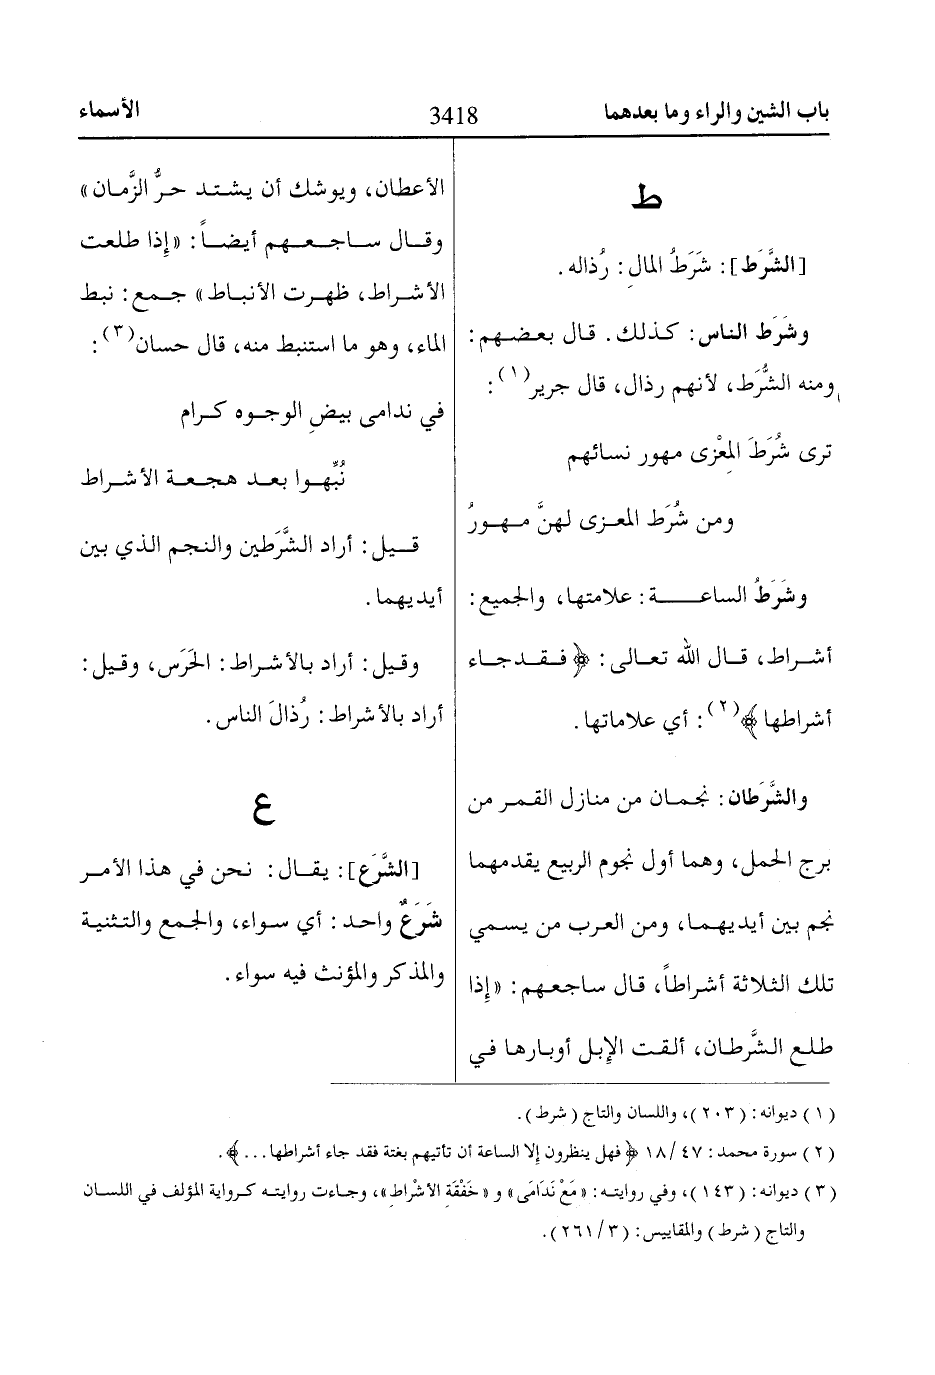 باب الشين والراء وما بعدهما 3418 الأسماء
ط
[الشَّرَط]: شَرَطُ المالِ: رُذاله.
وشَرَط الناس: كذلك. قال بعضهم:
ومنه الشُّرَط، لأنهم رذال، قال جرير(١):
ترى شُرَطَ المِعْزى مهور نسائهم
ومن شُرَط المعزى لهنَّ مهورُ
وشَرَطُ الساعة: علامتها، والجميع:
أشراط، قال الله تعالى: ﴿فقد جاء
أشراطها﴾(٢): أي علاماتها.
والشَّرَطان: نجمان من منازل القمر من
برج الحمل، وهما أول نجوم الربيع يقدمهما
نجم بين أيديهما، ومن العرب من يسمي
تلك الثلاثة أشراطاً، قال ساجعهم: «إذا
طلع الشَّرطان، ألقت الإبل أوبارها في
الأعطان، ويوشك أن يشتد حرُّ الزَّمان»
وقال ساجعهم أيضاً: «إذا طلعت
الأشراط، ظهرت الأنباط» جمع: نبط
الماء، وهو ما استنبط منه، قال حسان(٣):
في ندامى بيضِ الوجوه كرام
نُبِّهوا بعد هجعة الأشراط
قيل: أراد الشَّرَطين والنجم الذي بين
أيديهما.
وقيل: أراد بالأشراط: الحَرَس، وقيل:
أراد بالأشراط: رُذالَ الناس.
ع
[الشَّرَع]: يقال: نحن في هذا الأمر
شَرَعٌ واحد: أي سواء، والجمع والتثنية
والمذكر والمؤنث فيه سواء.
(١) ديوانه: (٢٠٣)، واللسان والتاج (شرط).
(٢) سورة محمد: ٤٧/ ١٨ ﴿فهل ينظرون إلا الساعة أن تأتيهم بغتة فقد جاء أشراطها...﴾.
(٣) ديوانه: (١٤٣)، وفي روايته: «مَعْ نَدَامَى» و «خَفْقَةِ الأشْراط»، وجاءت روايته كرواية المؤلف في اللسان
والتاج (شرط) والمقاييس: (٣/ ٢٦١).